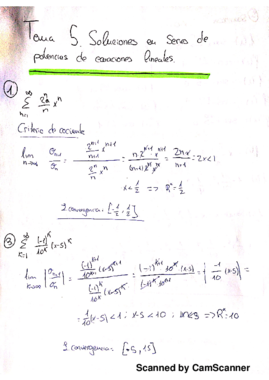 Tema 5. Soluciones en Serie de
potencias de ecuaciones lineales.
① ∑_{n=1}^{∞} 2^n/n x^n
Criterio del cociente
lim_{n→∞} a_{n+1}/a_n = (2^{n+1}/(n+1) x^{n+1})/(2^n/n x^n) = (n 2^{n+1} x^{n+1})/((n+1) 2^n x^n) = 2n/(n+1) = 2x<1
x < 1/2 => R = 1/2
I convergencia: [-1/2, 1/2]
③ ∑_{k=1}^{∞} (-1)^k/10^k (x-5)^k
lim_{k→∞} |a_{n+1}/a_n| = ((-1)^{k+1}/10^{k+1} (x-5)^{k+1})/((-1)^k/10^k (x-5)^k) = ((-1)^{k+1} 10^k (x-5))/((-1)^k 10^{k+1}) = |-1/10 (x-5)| =
= 1/10 (x-5) < 1 ; x-5 < 10 ; => R = 10
I convergencia: [-5, 15]
Scanned by CamScanner